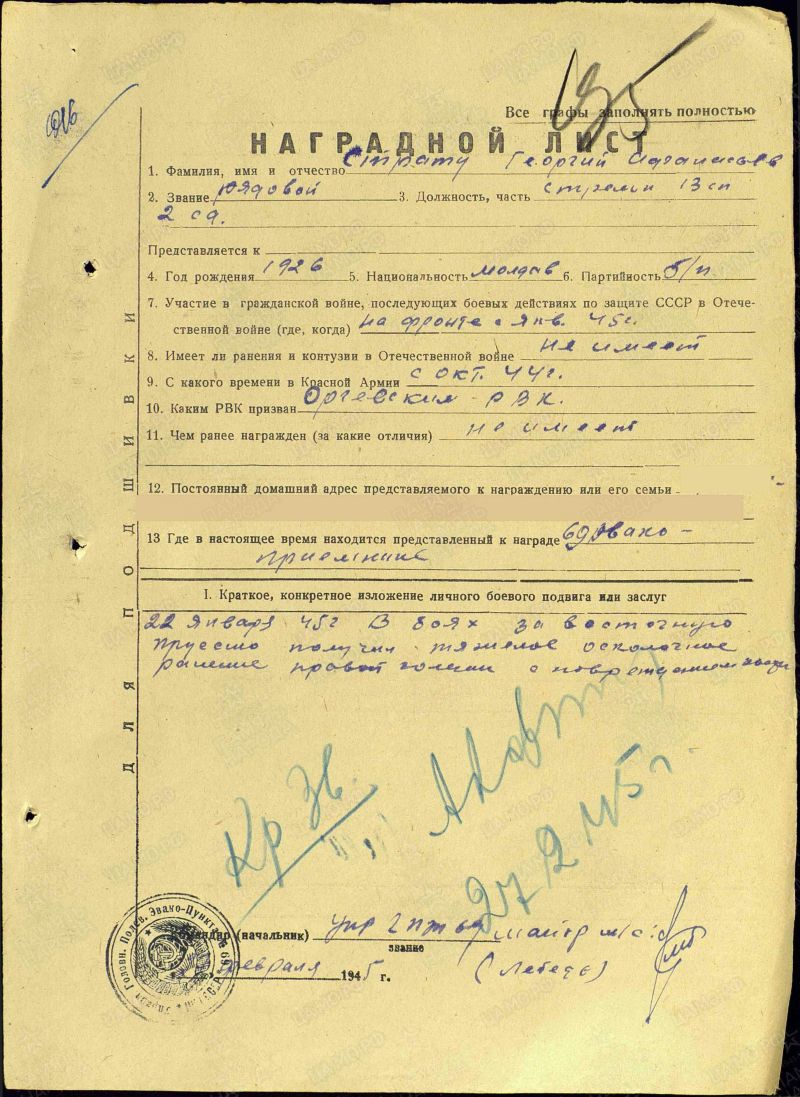 195
Все графы заполнять полностью
НАГРАДНОЙ ЛИСТ
1. Фамилия, имя и отчество Страту Георгий
2. Звание рядовой 3. Должность, часть стрелок 13 сп
2 сд.
Представляется к
4. Год рождения 1926 5. Национальность молдав 6. Партийность б/п
7. Участие в гражданской войне, последующих боевых действиях по защите СССР в Отече-
ственной войне (где, когда) на фронте с янв. 45 г.
8. Имеет ли ранения и контузии в Отечественной войне не имеет
9. С какого времени в Красной Армии с окт. 44 г.
10. Каким РВК призван Оргеевским РВК.
11. Чем ранее награжден (за какие отличия) не имеет
12. Постоянный домашний адрес представляемого к награждению или его семьи
13 Где в настоящее время находится представленный к награде 69 эвако-
приемнике
I. Краткое, конкретное изложение личного боевого подвига или заслуг
22 января 45 г В боях за восточную
Пруссию получил тяжелое осколочное
ранение правой голени с повреждением кости
ДЛЯ ПОДШИВКИ
Кр Зв.
27 2 45 г.
Командир (начальник) майор м/с
звание
февраля 1945 г.